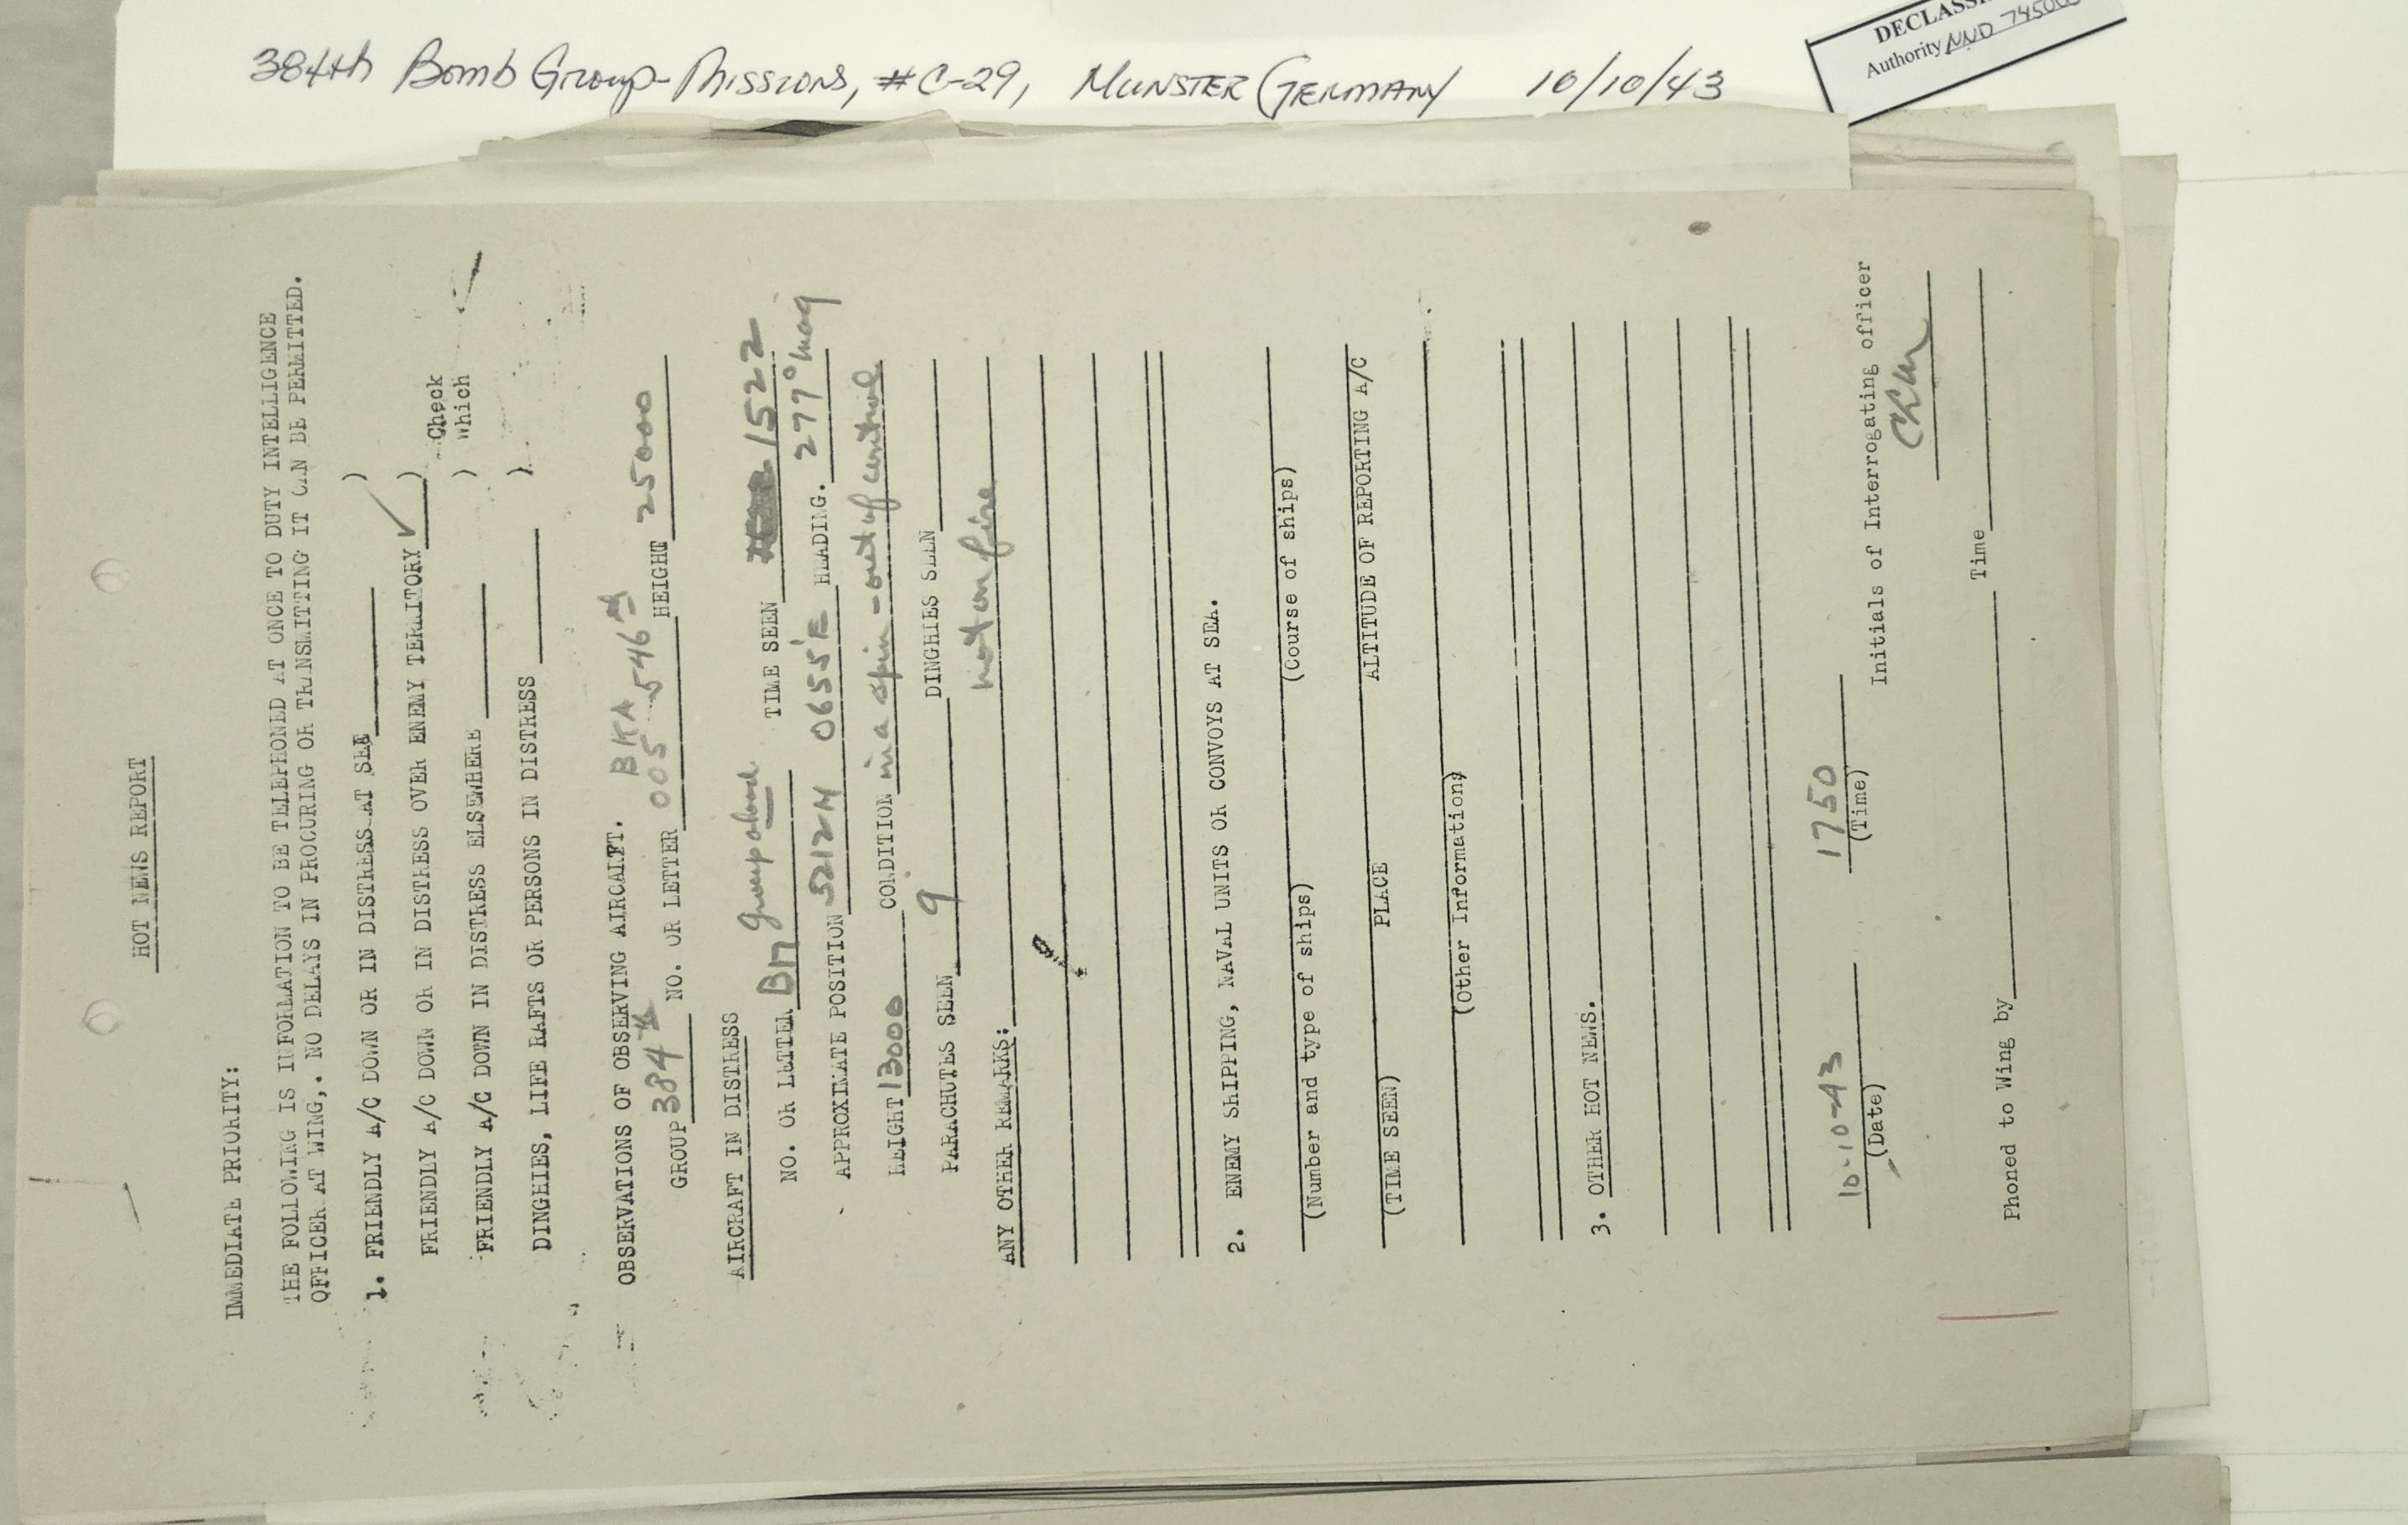 384th Bomb Group-Missions, #C-29, MUNSTER (GERMANY 10/10/43
DECLASSI
Authority NND 74500
HOT NEWS REPORT
IMMEDIATE PRIORITY:
THE FOLLOWING IS INFORMATION TO BE TELEPHONED AT ONCE TO DUTY INTELLIGENCE
OFFICER AT WING,. NO DELAYS IN PROCURING OR TRANSMITTING IT CAN BE PERMITTED.
1. FRIENDLY A/C DOWN OR IN DISTRESS AT SEA )
FRIENDLY A/C DOWN OR IN DISTRESS OVER ENEMY TERRITORY ✓ ) Check
FRIENDLY A/C DOWN IN DISTRESS ELSEWHERE ) Which
DINGHIES, LIFE RAFTS OR PERSONS IN DISTRESS )
OBSERVATIONS OF OBSERVING AIRCARFT. BKA
GROUP 384th NO. OR LETTER 005 546th HEIGHT 25000
AIRCRAFT IN DISTRESS
NO. OR LETTER B17 group ahead TIME SEEN 1522
APPROXIMATE POSITION 5212N 0655'E HEADING. 277° mag
HEIGHT 13000 CONDITION in a spin - out of control
PARACHUTES SEEN 9 DINGHIES SEEN
ANY OTHER REMARKS: not on fire
2. ENEMY SHIPPING, NAVAL UNITS OR CONVOYS AT SEA.
(Number and type of ships) (Course of ships)
(TIME SEEN) PLACE ALTITUDE OF REPORTING A/C
(Other Information)
3. OTHER HOT NEWS.
10-10-43 1750
(Date) (Time) Initials of Interrogating officer
Phoned to Wing by Time